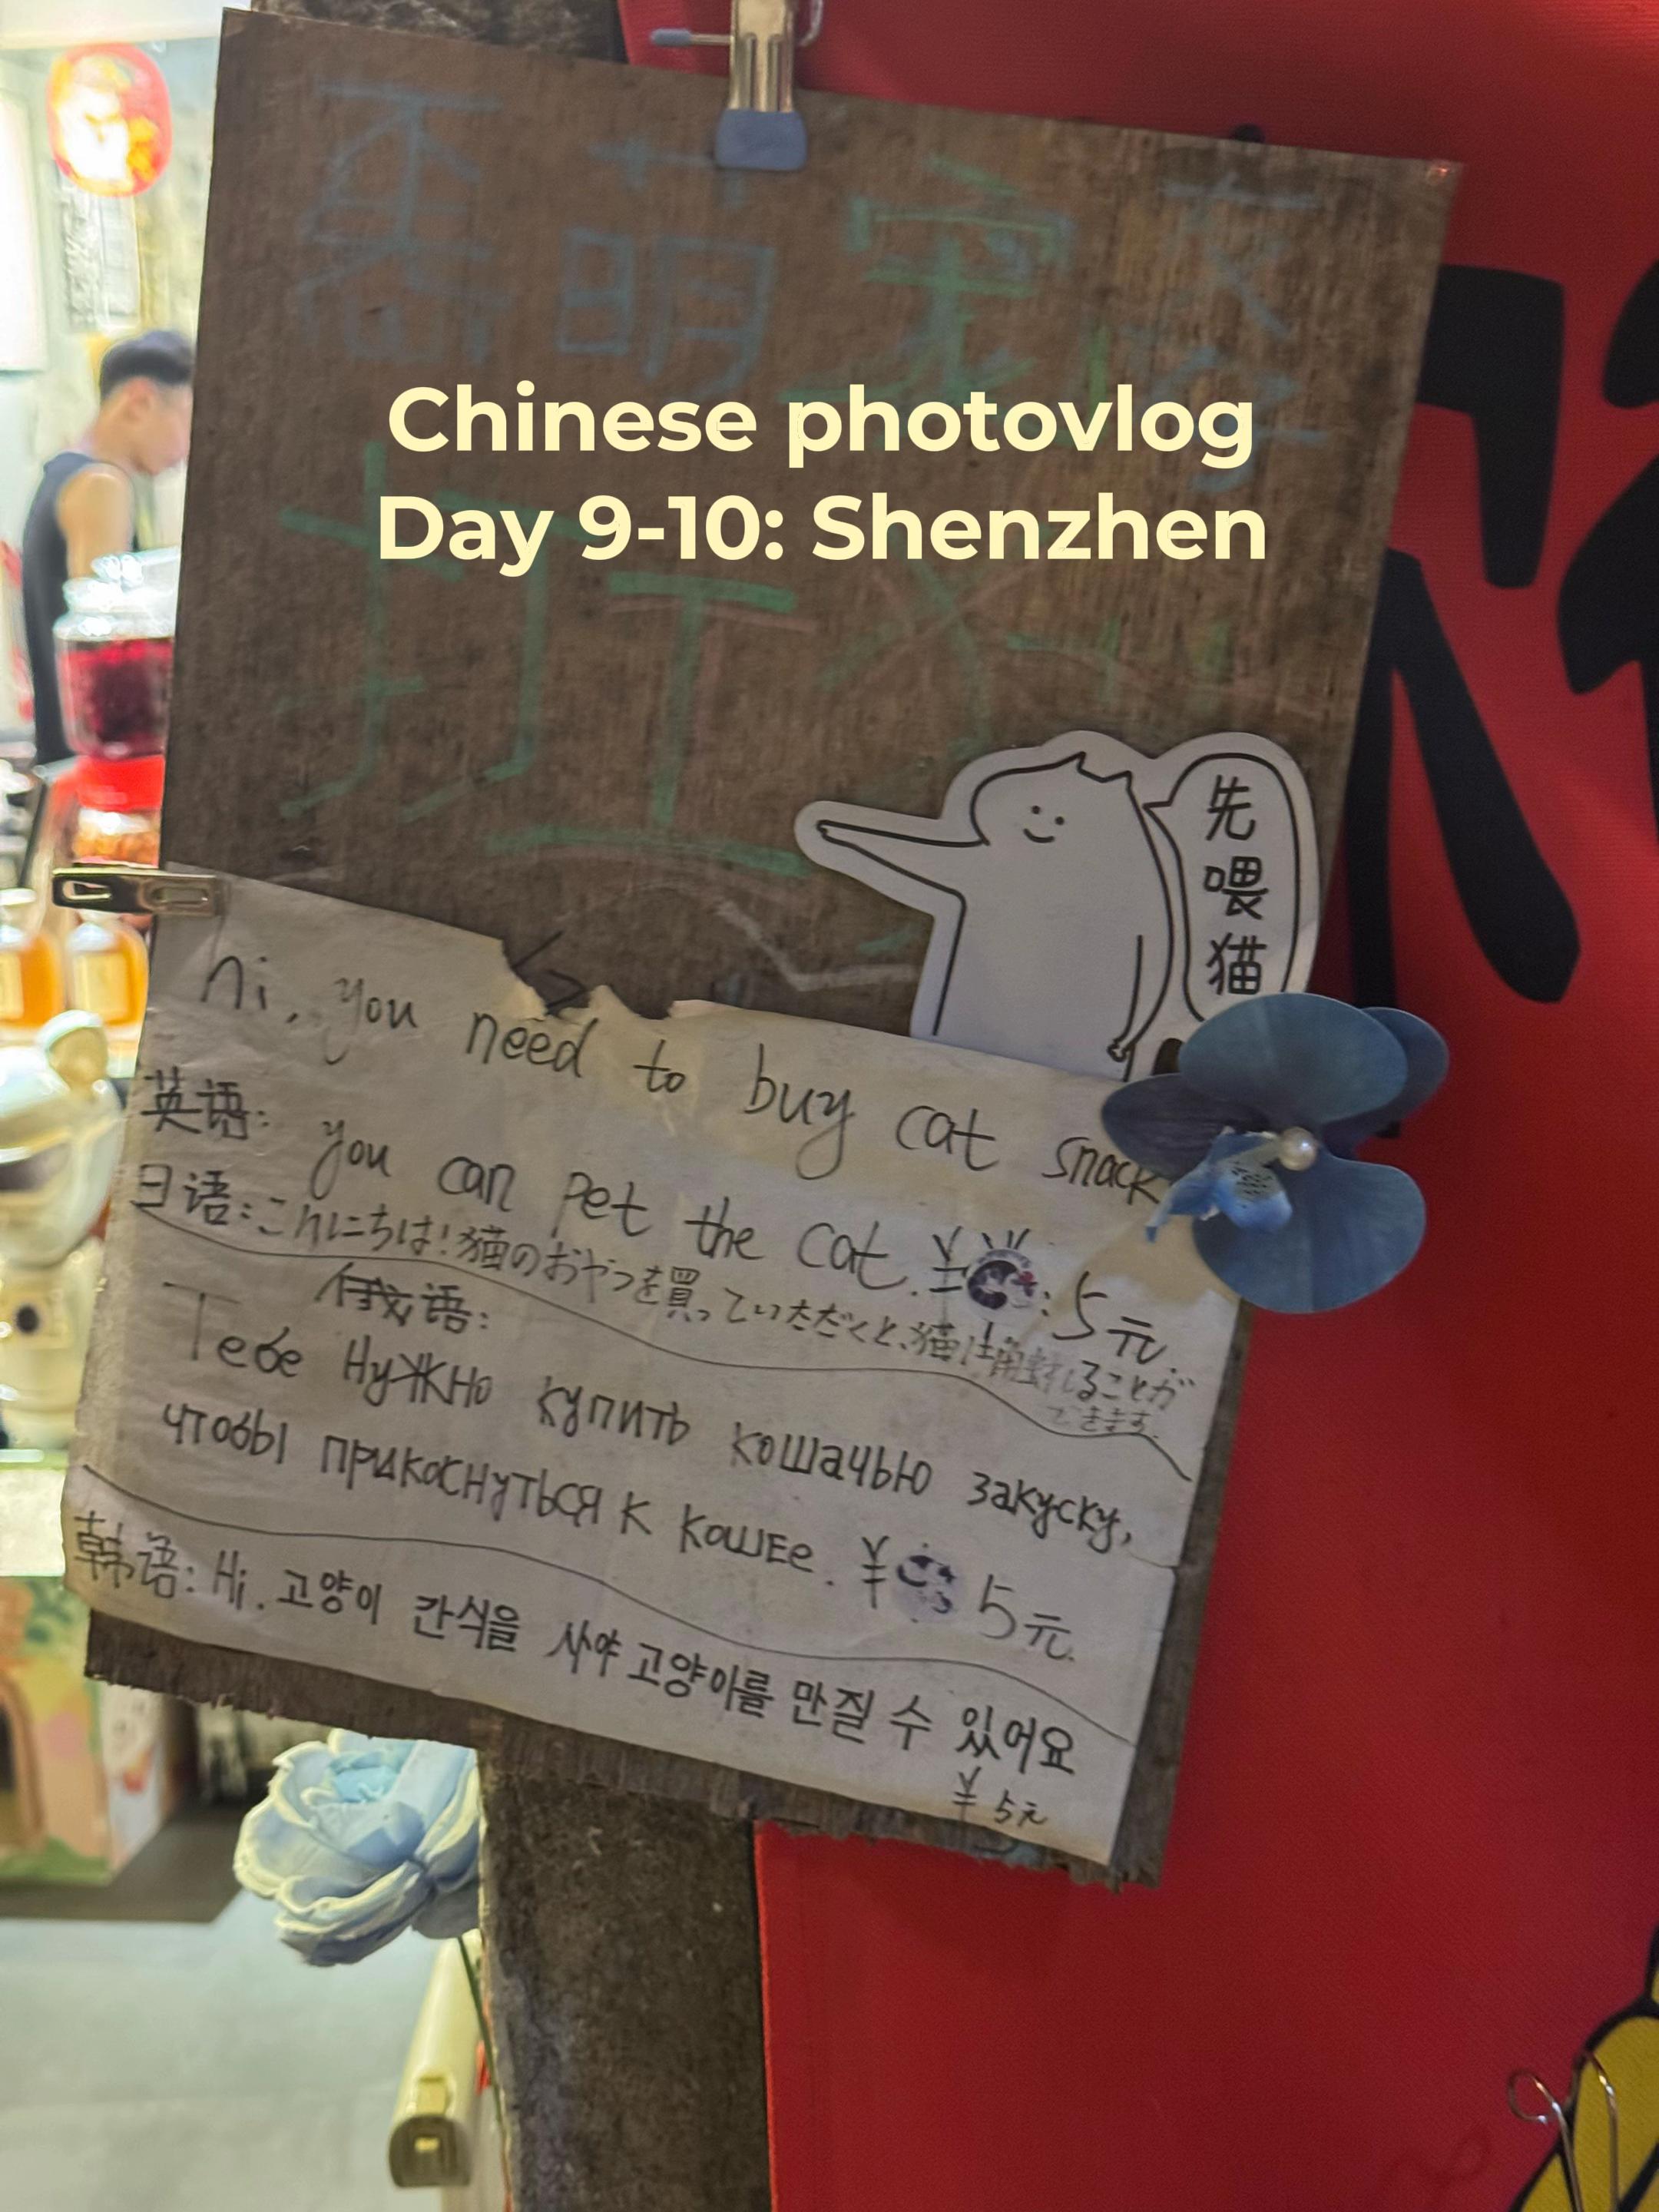 Chinese photovlog
Day 9-10: Shenzhen
打工
先
喂
猫
hi, you need to buy cat snack
英语: you can pet the cat. ¥ : 5元.
日语:こんにちは!猫のおやつを買っていただくと、猫に触れることが
できます.
俄语:
Тебе нужно купить кошачью закуску,
чтобы прикоснуться к кошее. ¥ 5元.
韩语: Hi. 고양이 간식을 사야 고양아를 만질 수 있어요
¥ 5元